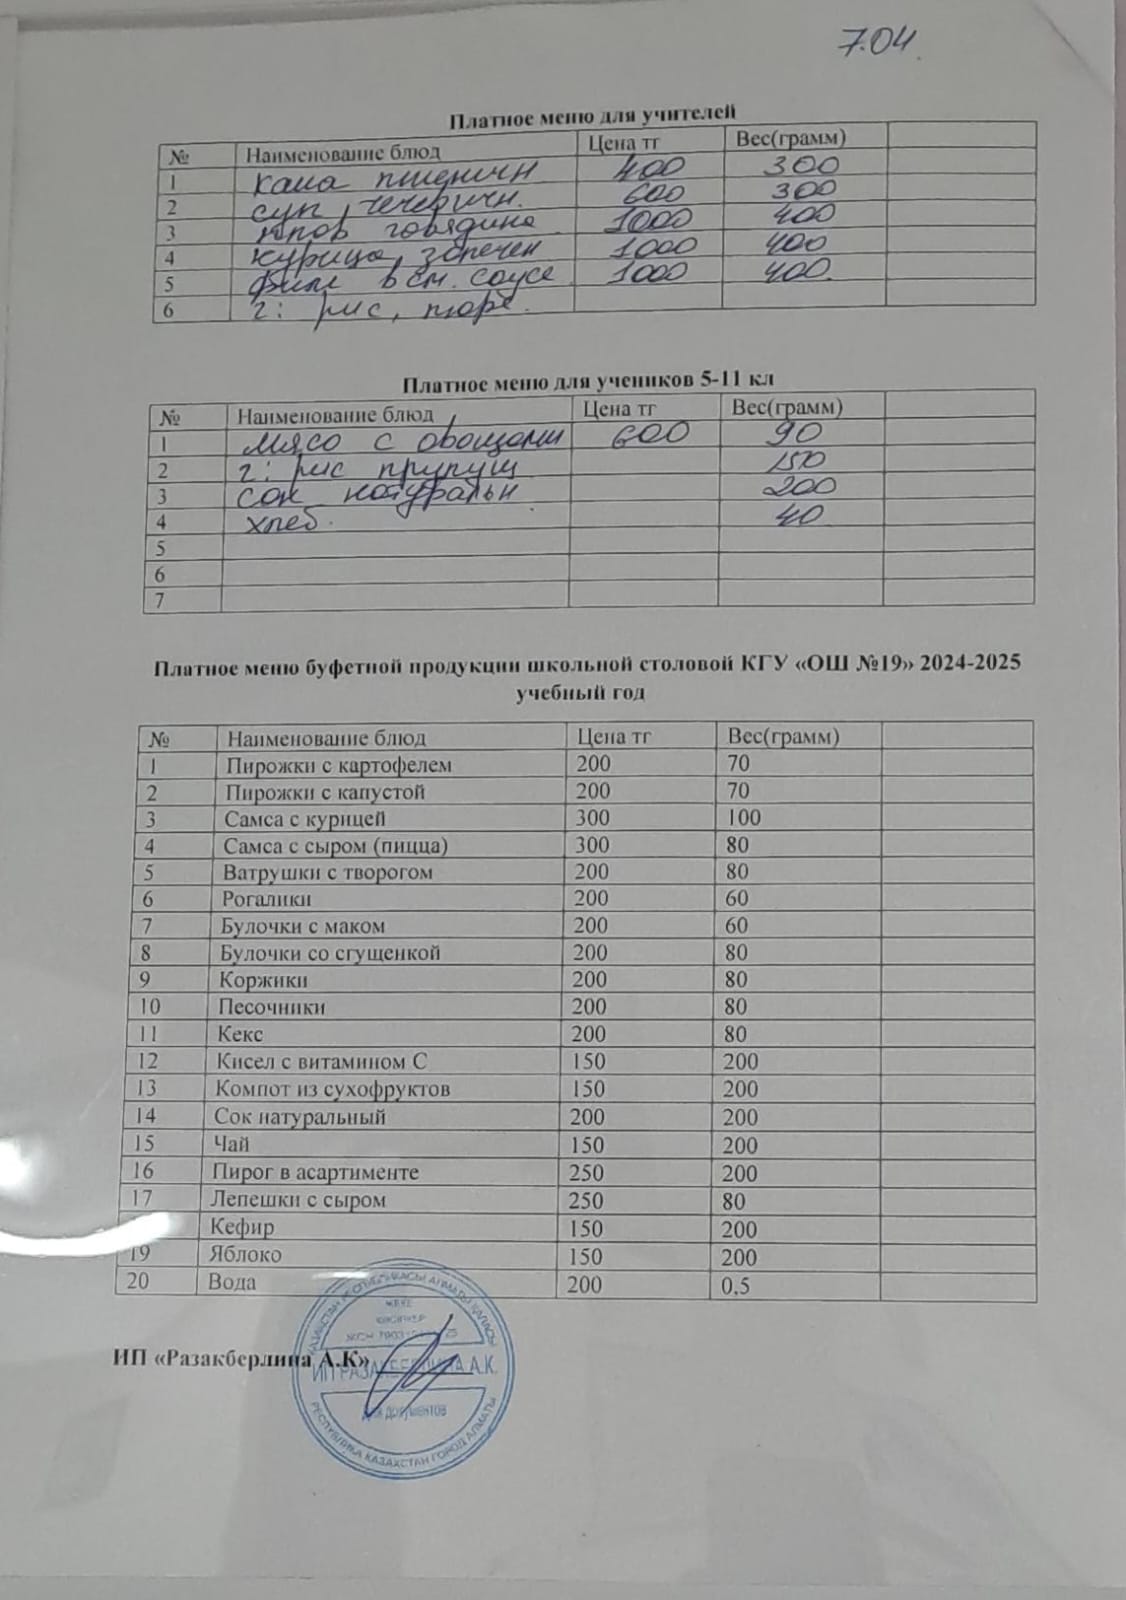 7.04
Платное меню для учителей
№ Наименование блюд Цена тг Вес(грамм)
1 каша пшеничн 400 300
2 суп чечевичн. 600 300
3 говядина 1000 400
4 курица запечен 1000 400
5 филе в см. соусе 1000 400
6 г: рис, пюре.
Платное меню для учеников 5-11 кл
№ Наименование блюд Цена тг Вес(грамм)
1 мясо с овощами 600 90
2 г: рис припущ 150
3 сок натуральн 200
4 хлеб. 40
5
6
7
Платное меню буфетной продукции школьной столовой КГУ «ОШ №19» 2024-2025
учебный год
№ Наименование блюд Цена тг Вес(грамм)
1 Пирожки с картофелем 200 70
2 Пирожки с капустой 200 70
3 Самса с курицей 300 100
4 Самса с сыром (пицца) 300 80
5 Ватрушки с творогом 200 80
6 Рогалики 200 60
7 Булочки с маком 200 60
8 Булочки со сгущенкой 200 80
9 Коржики 200 80
10 Песочники 200 80
11 Кекс 200 80
12 Кисел с витамином С 150 200
13 Компот из сухофруктов 150 200
14 Сок натуральный 200 200
15 Чай 150 200
16 Пирог в асартименте 250 200
17 Лепешки с сыром 250 80
Кефир 150 200
19 Яблоко 150 200
20 Вода 200 0,5
ИП «Разакберлина А.К»
ИП РАЗАКБЕРЛИНА А.К.
ДЛЯ ДОКУМЕНТОВ
РЕСПУБЛИКА КАЗАХСТАН ГОРОД АЛМАТЫ